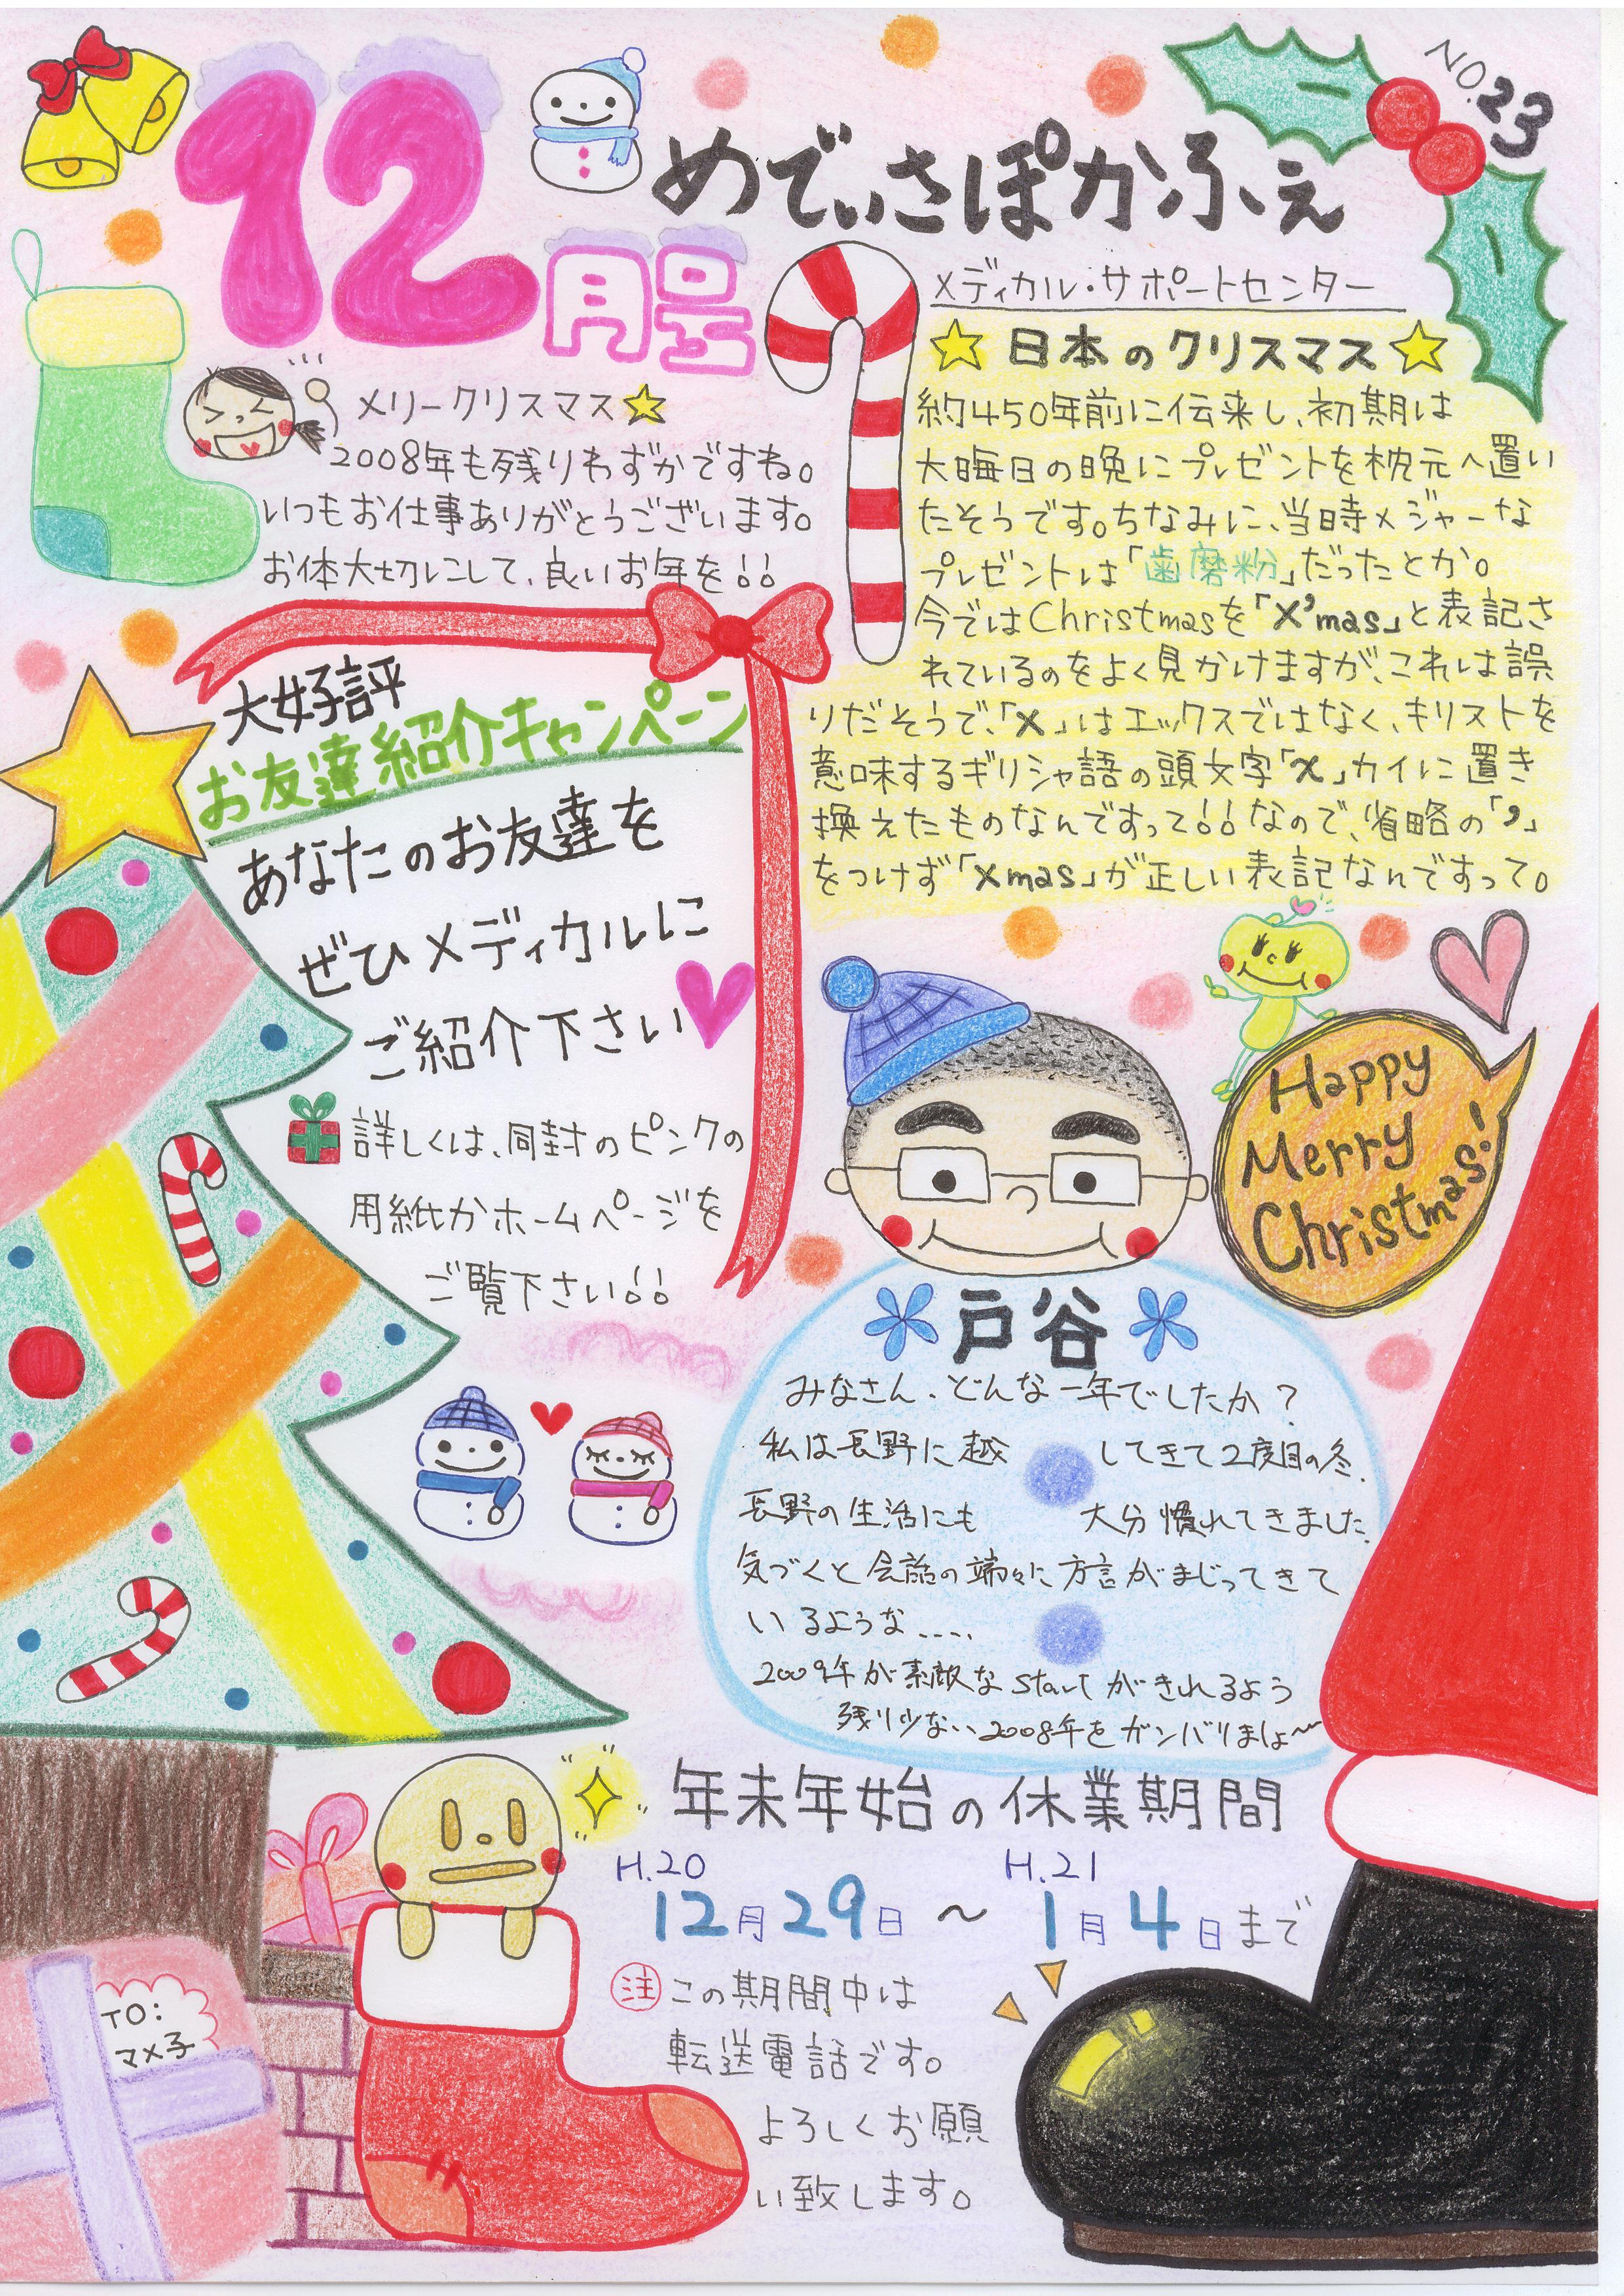 12月号
めでぃさぽかふぇ
NO.23
メディカル・サポートセンター
メリークリスマス
2008年も残りわずかですね。
いつもお仕事ありがとうございます。
お体大切にして、良いお年を!!
日本のクリスマス
約450年前に伝来し、初期は
大晦日の晩にプレゼントを枕元へ置い
たそうです。ちなみに、当時メジャーな
プレゼントは「歯磨粉」だったとか。
今ではChristmasを「X'mas」と表記さ
れているのをよく見かけますが、これは誤
りだそうで、「X」はエックスではなく、キリストを
意味するギリシャ語の頭文字「χ」カイに置き
換えたものなんですって!!なので、省略の「'」
をつけず「Xmas」が正しい表記なんですって。
大好評
お友達紹介キャンペーン
あなたのお友達を
ぜひメディカルに
ご紹介下さい
詳しくは、同封のピンクの
用紙かホームページを
ご覧下さい!!
Happy
Merry
Christmas!
戸谷
みなさん、どんな一年でしたか?
私は長野に越してきて2度目の冬、
長野の生活にも大分慣れてきました。
気づくと会話の端々に方言がまじってきて
いるような....
2009年が素敵なstartがきれるよう
残り少ない2008年をガンバリましょ〜
年末年始の休業期間
H.20 H.21
12月29日〜1月4日まで
注 この期間中は
転送電話です。
よろしくお願
い致します。
TO:
マメ子